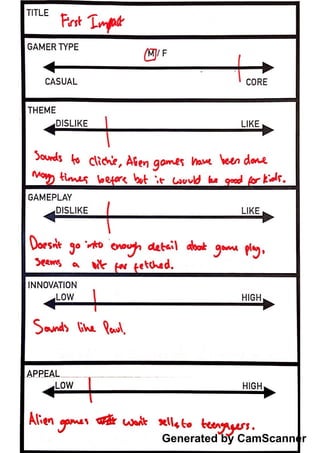 TITLE
First Impact
GAMER TYPE
M / F
CASUAL CORE
THEME
DISLIKE LIKE
Sounds to Clichie, Alien games have been done
many times before but it would be good for kids.
GAMEPLAY
DISLIKE LIKE
Doesn't go into enough detail about game play,
seems a bit far fetched.
INNOVATION
LOW HIGH
Sounds like Paul.
APPEAL
LOW HIGH
Alien games wont sell to teengagers.
Generated by CamScanner